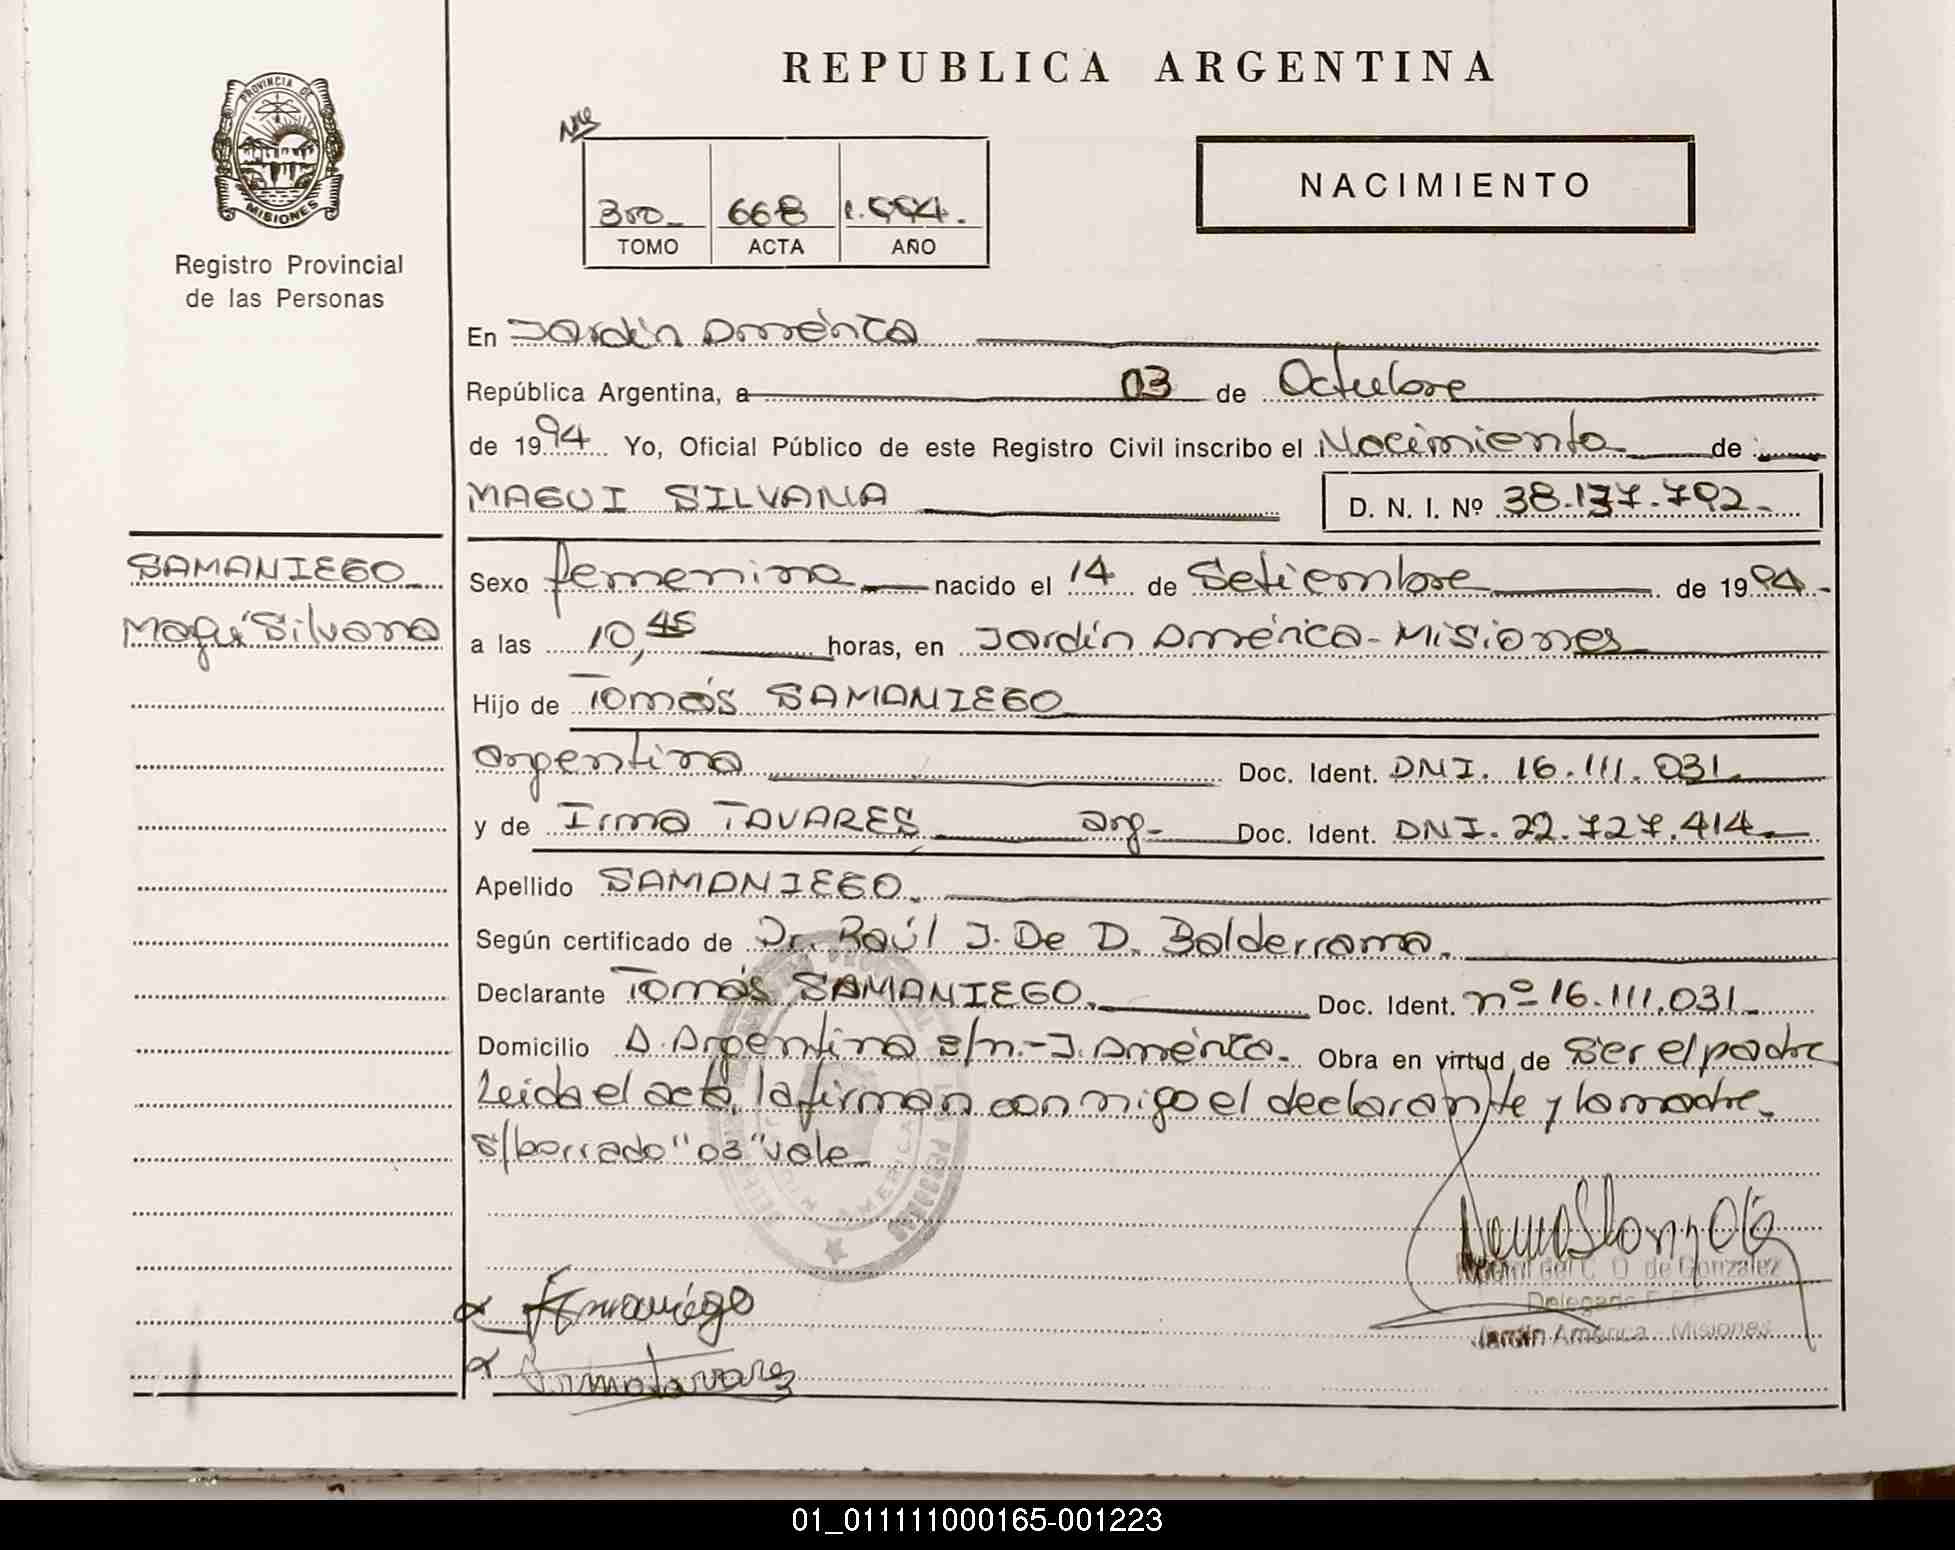 REPUBLICA ARGENTINA
PROVINCIA DE
MISIONES
Registro Provincial
de las Personas
300
668
1.994.
TOMO
ACTA
AÑO
NACIMIENTO
En Jardín América
República Argentina, a 03 de Octubre
de 1994 Yo, Oficial Público de este Registro Civil inscribo el Nacimiento de
MAGUI SILVANA D. N. I. Nº 38.137.792.
SAMANIEGO
Maguí Silvana
Sexo femenino nacido el 14 de Setiembre de 1994
a las 10,45 horas, en Jardín América - Misiones
Hijo de Tomás SAMANIEGO
argentina Doc. Ident. DNI. 16.111.031
y de Irma TAVARES arg. Doc. Ident. DNI. 22.727.414
Apellido SAMANIEGO.
Según certificado de Dr. Raúl J. De D. Balderrama.
Declarante Tomás SAMANIEGO. Doc. Ident. nº 16.111.031
Domicilio A. Argentina s/n.- J. América. Obra en virtud de Ser el padre
Leida el acta, la firman con migo el declarante y la madre.
s/borrado "03" vale
C. O. de Gonzalez
Jardín América - Misiones
Samaniego
Irma Tavares
01_011111000165-001223